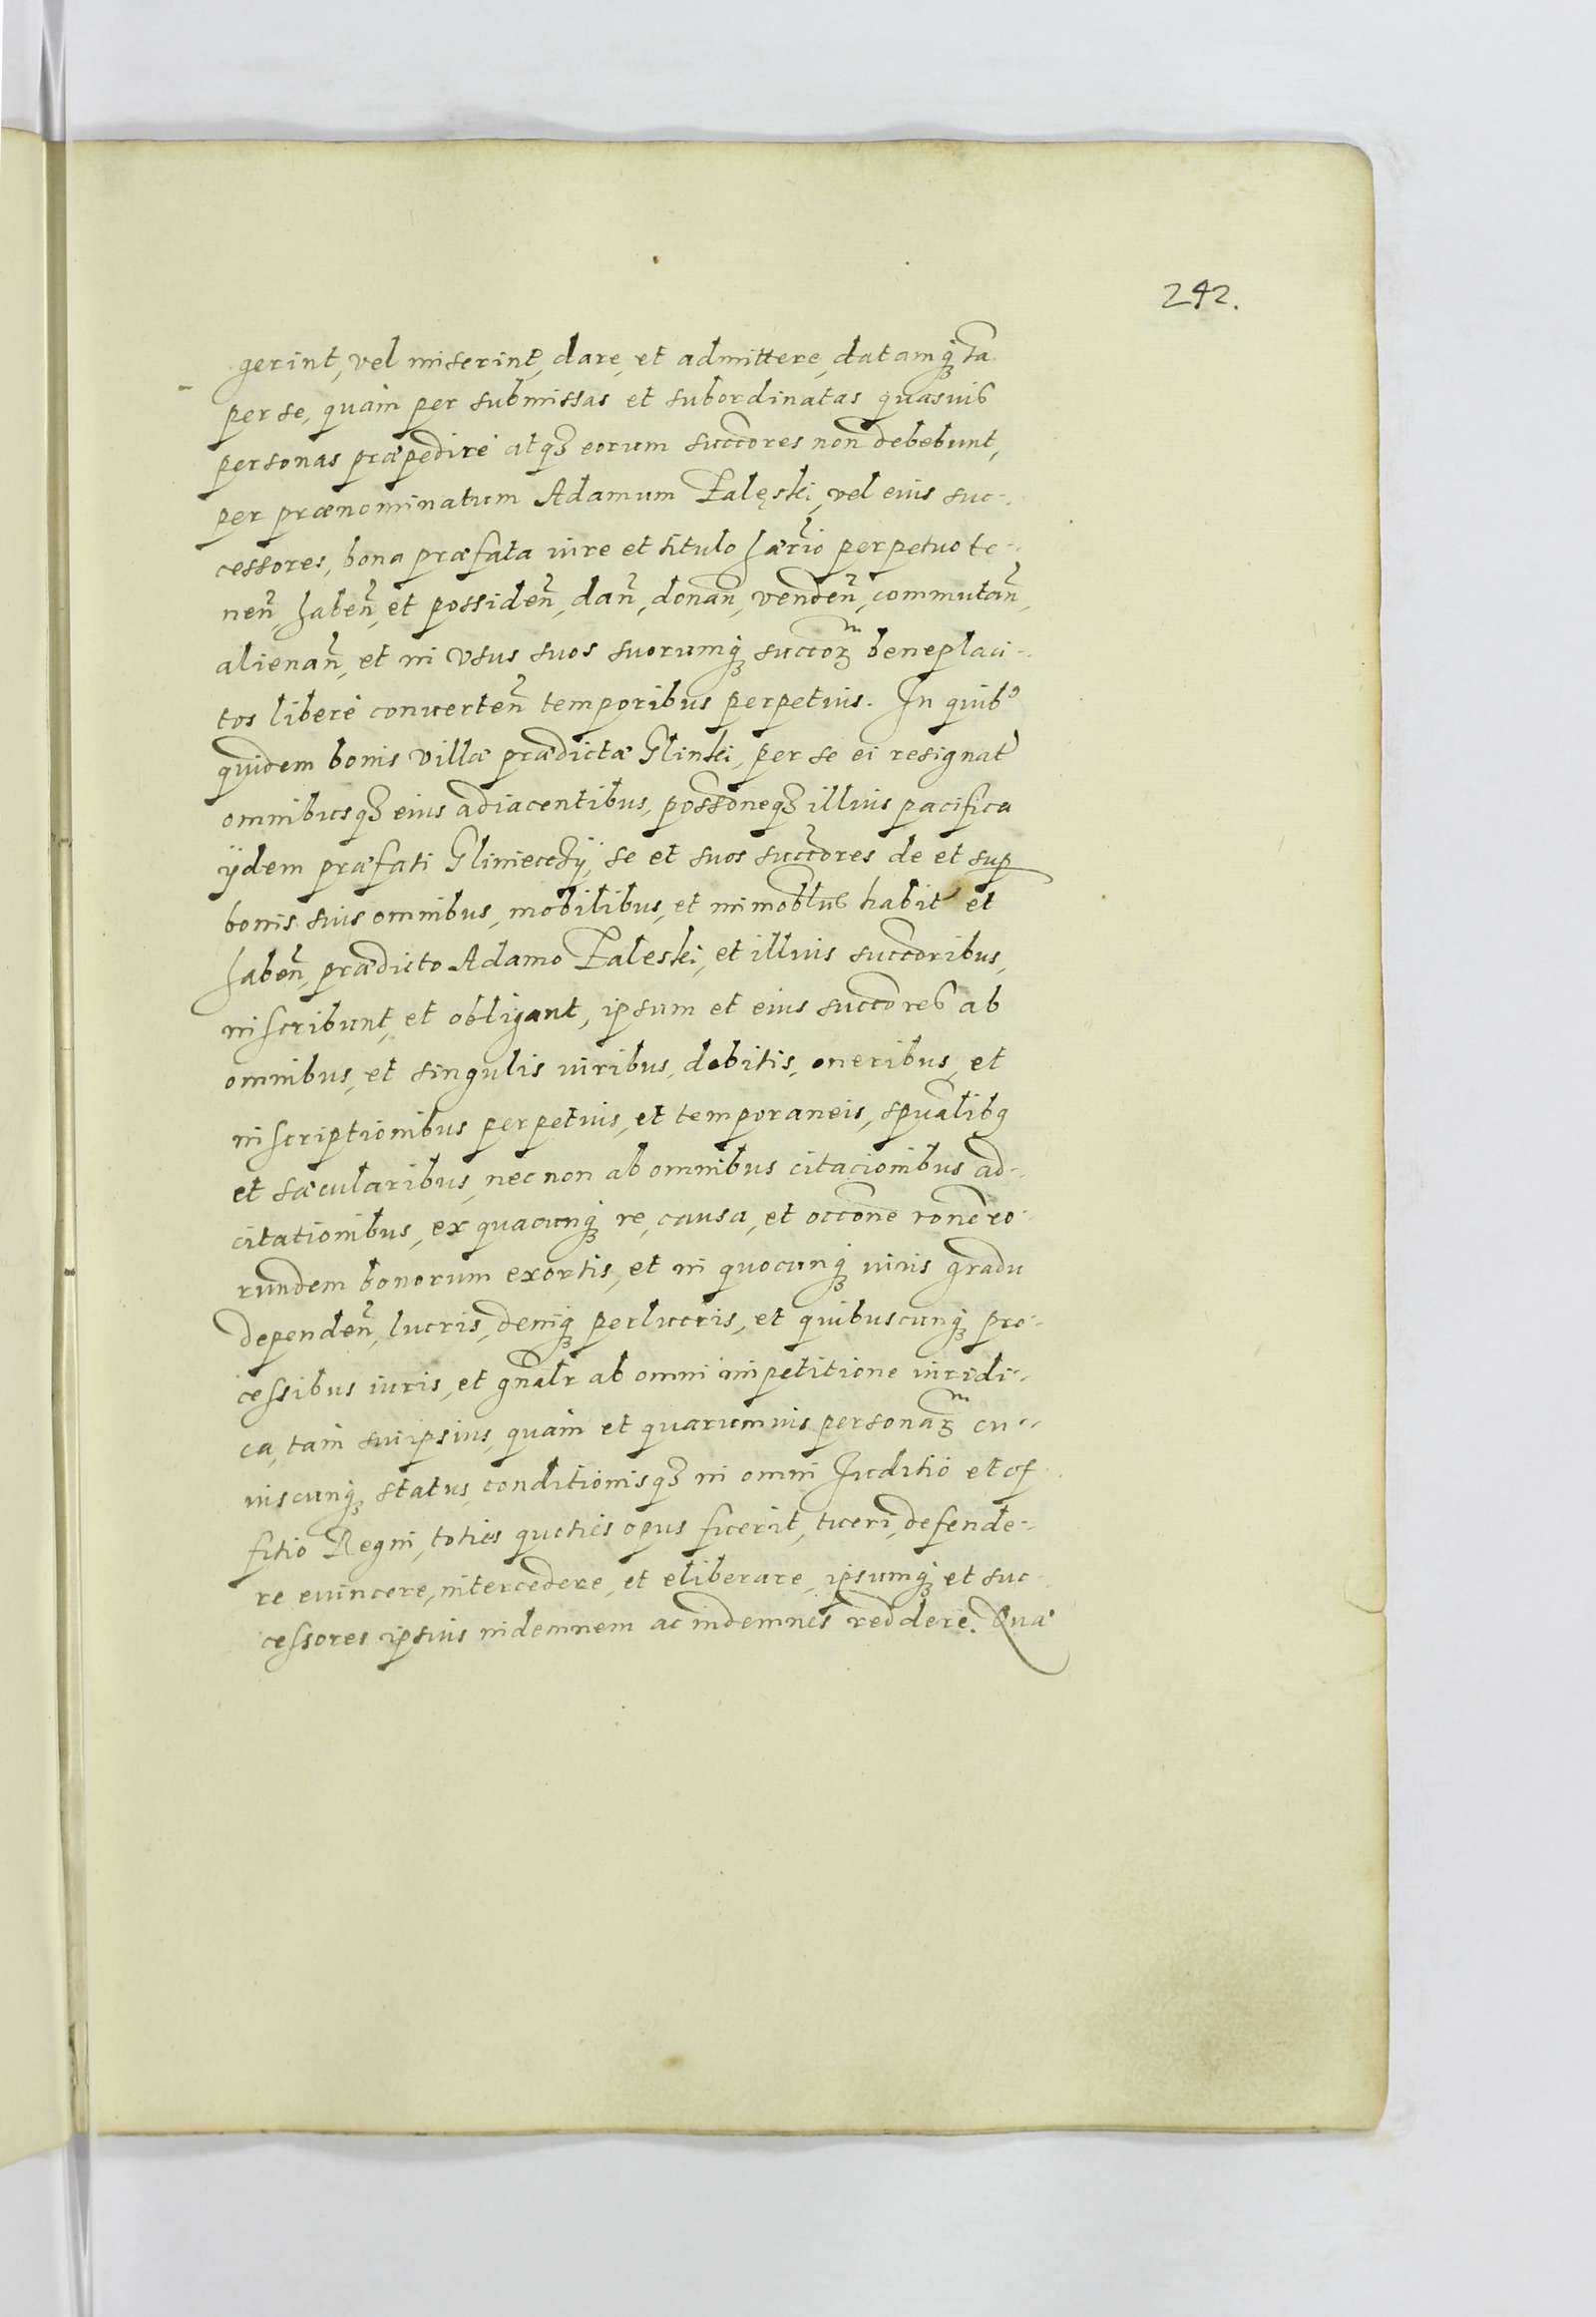 242.
gerint, vel miserint, dare, et admittere, datamq́ꝫ tã
per se, quàm per submissas et subordinatas quasuis
personas præpedire atqꝫ eorum succores non debebunt,
per prænominatum Adamum Zalęski, vel eius suc-
cessores, bona præfata iure et titulo hærio perpetuo te-
neñ, habeñ, et possideñ, dañ, donañ, vendeñ, commutañ,
alienañ, et in vsus suos suorumq́ꝫ succoꝝ beneplaci-
tos liberè conuerteñ temporibus perpetuis. In quibꝰ
quidem bonis villæ prædictæ Glinki, per se ei resignat̃
omnibusqꝫ eius adiacentibus, possõneqꝫ illius pacifica
ijdem præfati Glinieccÿ, se et suos succores de et sup
bonis suis omnibus, mobilibus, et immoblibus habit̃ et
habeñ, prædicto Adamo Zaleski, et illius succoribus,
inscribunt, et obligant, ipsum et eius succores ab
omnibus, et singulis iuribus, debitis, oneribus, et
inscriptionibus perpetuis, et temporaneis, spũalibꝫ
et sæcularibus, nec non ab omnibus citacionibus ad-
citationibus, ex quacunq́ꝫ re, causa, et occõne rõne eo-
rundem bonorum exortis, et in quocunq́ꝫ iuris gradu
dependeñ, lucris, deniq́ꝫ perlucris, et quibuscunq́ꝫ pro-
cessibus iuris, et gñalr ab omni impetitione iuridi-
ca, tàm sui ipsius, quàm et quarumuis personaꝝ cu-
iuscunq́ꝫ status, conditionisqꝫ in omni Juditio et of
fitio Regni, toties quoties opus fuerit, tueri, defende-
re euincere, intercedere, et eliberare, ipsumq́ꝫ et suc-
cessores ipsius indemnem ac indemnes reddere. Quæ